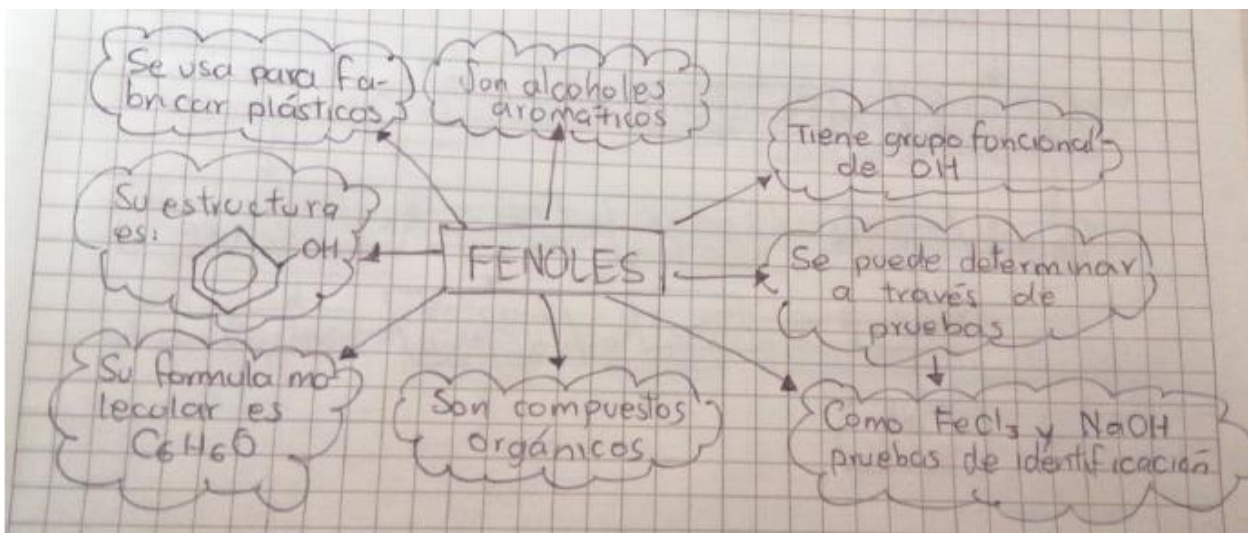 Se usa para fa-
bricar plásticos
Son alcoholes
aromáticos
Tiene grupo foncional
de OH
Su estructura
es:
OH
FENOLES
Se puede determinar
a través de
pruebas
Su formula mo-
lecular es
C6H6O
Son compuestos
orgánicos
Como FeCl3 y NaOH
pruebas de identificación